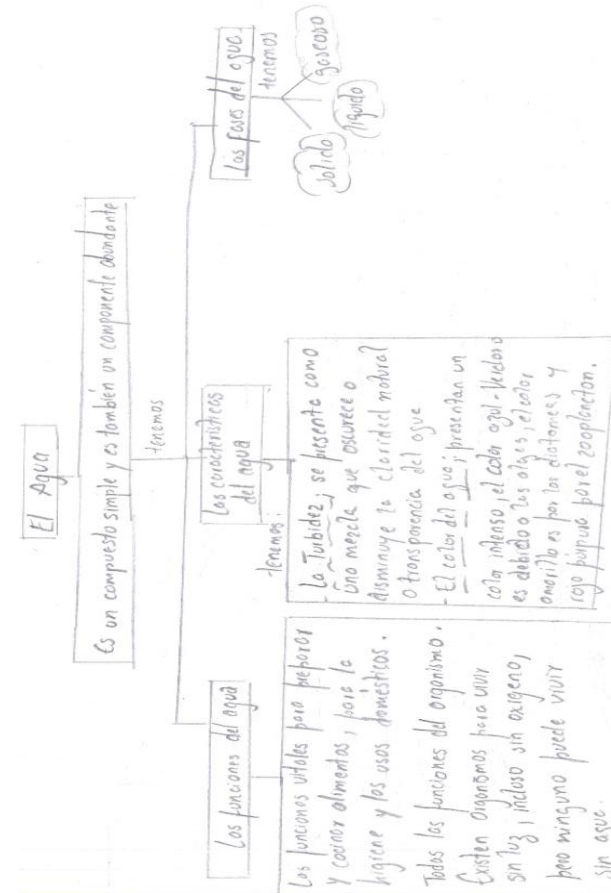 El Agua
Es un compuesto simple y es también un componente abundante
tenemos
Las funciones del agua
Las funciones vitales para preparar
y cocinar alimentos, para la
higiene y los usos domésticos.
Todas las funciones del organismo.
Existen organismos para vivir
sin luz, incluso sin oxigeno,
pero ninguno puede vivir
sin agua.
Las características
del agua
tenemos:
- La Turbidez; se presenta como
una mezcla que oscurece o
disminuye la claridad natural
o transparencia del agua
- El color del agua; presentan un
color intenso, el color azul-verdoso
es debido a las algas, el color
amarillo es por las diatomeas y
rojo púrpura por el zooplancton.
Las fases del agua.
tenemos
solido
liquido
gaseoso